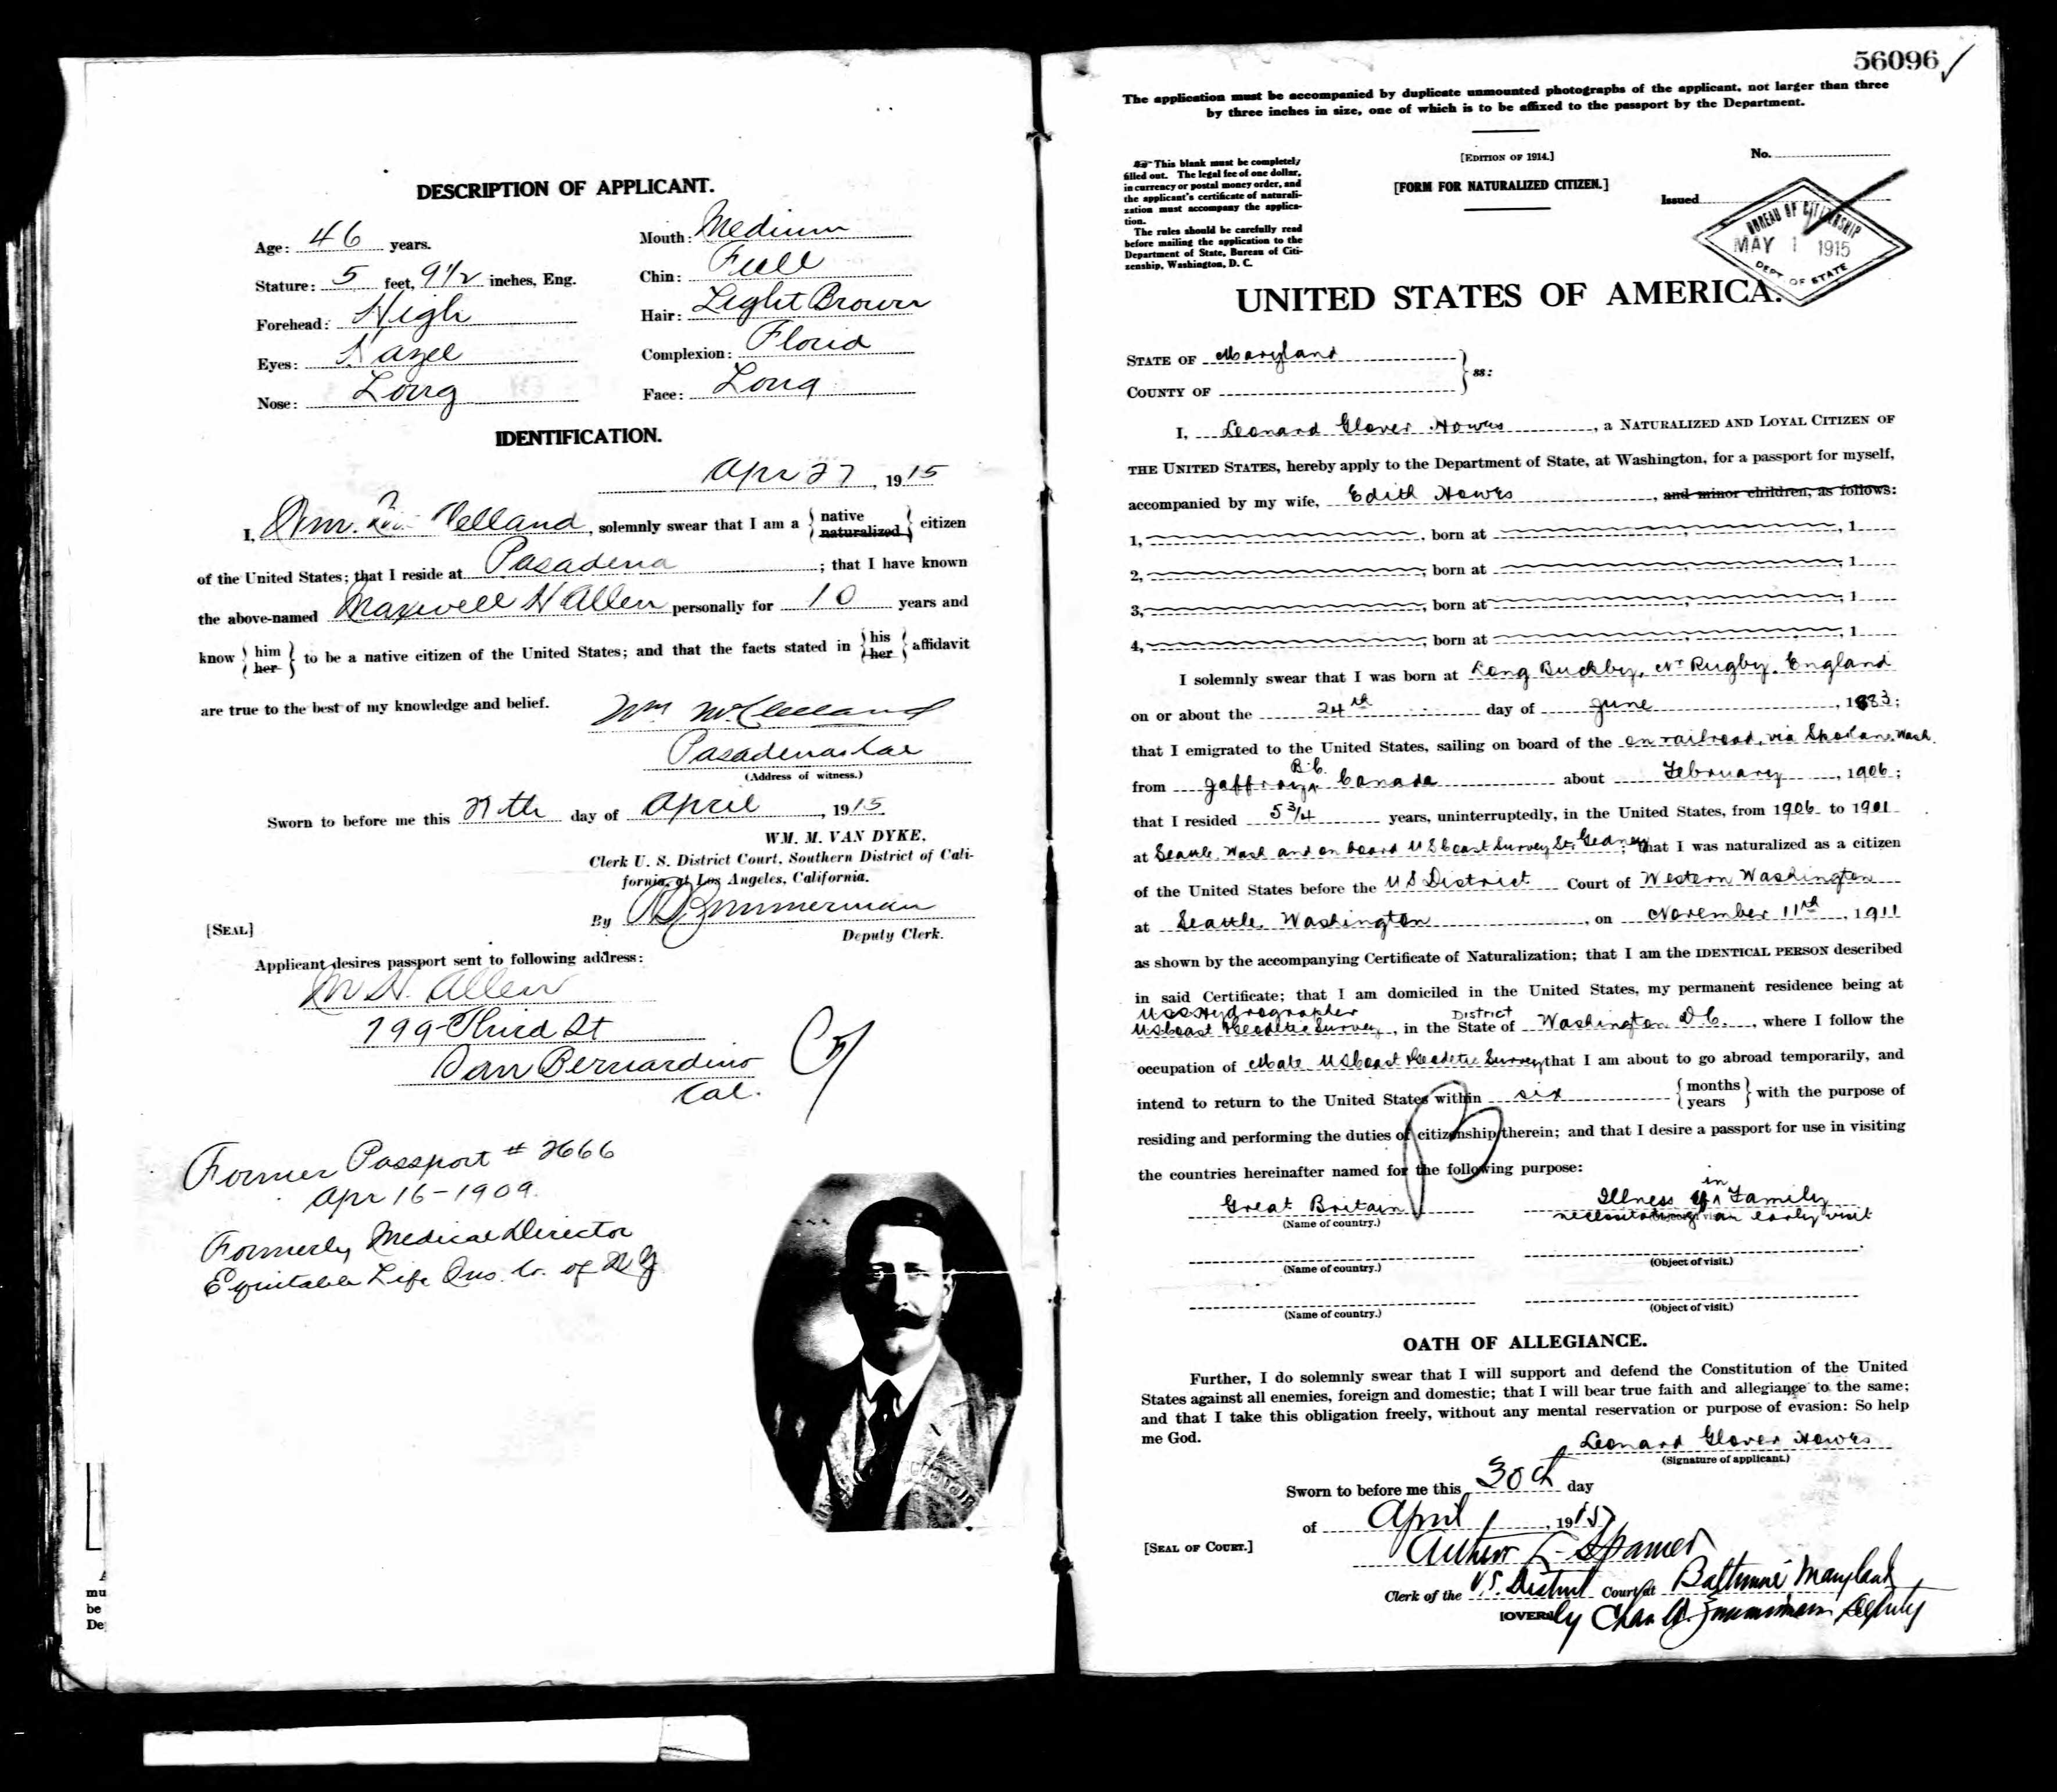 DESCRIPTION OF APPLICANT.
Age: 46 years.
Stature: 5 feet, 9 1/2 inches, Eng.
Forehead: High
Eyes: Hazel
Nose: Long
Mouth: Medium
Chin: Full
Hair: Light Brown
Complexion: Florid
Face: Long
IDENTIFICATION.
Apr 27, 1915
I, Wm. Clelland, solemnly swear that I am a { native naturalized } citizen
of the United States; that I reside at Pasadena; that I have known
the above-named Maxwell H Allen personally for 10 years and
know { him her } to be a native citizen of the United States; and that the facts stated in { his her } affidavit
are true to the best of my knowledge and belief.
Wm McClelland
Pasadena Cal
(Address of witness.)
Sworn to before me this 27th day of April, 1915.
WM. M. VAN DYKE,
Clerk U. S. District Court, Southern District of Cali-
fornia, at Los Angeles, California.
By Zimmerman
[SEAL]
Deputy Clerk.
Applicant desires passport sent to following address:
M H. Allen
799 Third St
San Bernardino
Cal.
Former Passport # 2666
Apr 16-1909.
Formerly Medical Director
Equitable Life Ins. Co. of N Y
mu
be
De
56096
The application must be accompanied by duplicate unmounted photographs of the applicant, not larger than three
by three inches in size, one of which is to be affixed to the passport by the Department.
This blank must be completely
filled out. The legal fee of one dollar,
in currency or postal money order, and
the applicant's certificate of naturali-
zation must accompany the applica-
tion.
The rules should be carefully read
before mailing the application to the
Department of State, Bureau of Citi-
zenship, Washington, D. C.
[EDITION OF 1914.]
[FORM FOR NATURALIZED CITIZEN.]
No.
Issued
BUREAU OF CITIZENSHIP
MAY 1 1915
DEPT OF STATE
UNITED STATES OF AMERICA.
STATE OF Maryland
COUNTY OF
ss:
I, Leonard Glover Howes, a NATURALIZED AND LOYAL CITIZEN OF
THE UNITED STATES, hereby apply to the Department of State, at Washington, for a passport for myself,
accompanied by my wife, Edith Howes, and minor children, as follows:
1, born at , 1
2, born at , 1
3, born at , 1
4, born at , 1
I solemnly swear that I was born at Long Buckby, Nr Rugby. England
on or about the 24th day of June, 1883;
that I emigrated to the United States, sailing on board of the on railroad, via Spokane, Wash.
from Jaffray, B.C. Canada about February, 1906;
that I resided 5 3/4 years, uninterruptedly, in the United States, from 1906 to 1901
at Seattle, Wash and on board U S Coast Survey Str. Gedney; that I was naturalized as a citizen
of the United States before the U S District Court of Western Washington
at Seattle, Washington, on November 11th, 1911
as shown by the accompanying Certificate of Naturalization; that I am the IDENTICAL PERSON described
in said Certificate; that I am domiciled in the United States, my permanent residence being at
USS Hydrographer
US Coast & Geodetic Survey, in the District State of Washington D.C., where I follow the
occupation of Mate US Coast & Geodetic Survey that I am about to go abroad temporarily, and
intend to return to the United States within six { months years } with the purpose of
residing and performing the duties of citizenship therein; and that I desire a passport for use in visiting
the countries hereinafter named for the following purpose:
Great Britain
(Name of country.)
Illness in Family
necessitating an early visit
(Name of country.)
(Object of visit.)
(Name of country.)
(Object of visit.)
OATH OF ALLEGIANCE.
Further, I do solemnly swear that I will support and defend the Constitution of the United
States against all enemies, foreign and domestic; that I will bear true faith and allegiance to the same;
and that I take this obligation freely, without any mental reservation or purpose of evasion: So help
me God.
Leonard Glover Howes
(Signature of applicant.)
Sworn to before me this 30th day
of April, 1915
[SEAL OF COURT.]
Arthur L. Spamer
Clerk of the U.S. District Court at Baltimore Maryland
[OVER.] By Chas W. Zimmerman Deputy